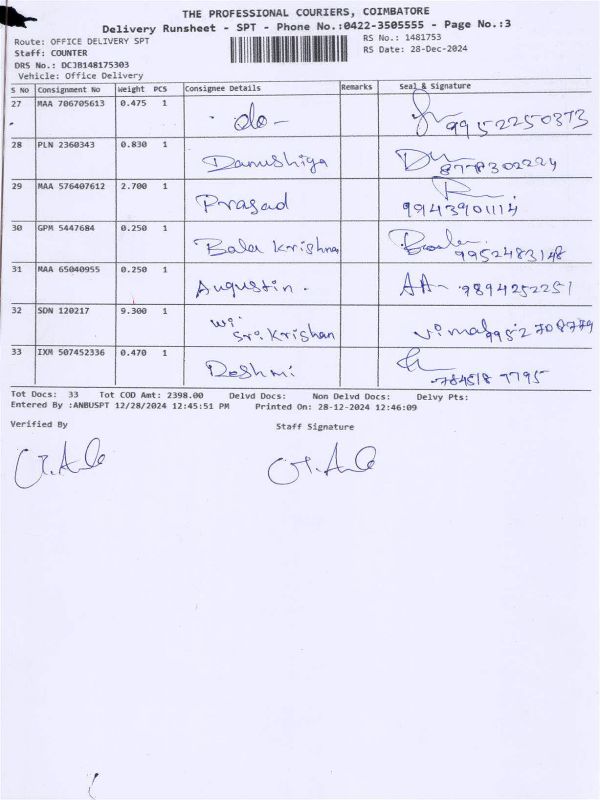 THE PROFESSIONAL COURIERS, COIMBATORE
Delivery Runsheet - SPT - Phone No.:0422-3505555 - Page No.:3
Route: OFFICE DELIVERY SPT RS No.: 1481753
Staff: COUNTER RS Date: 28-Dec-2024
DRS No.: DCJB148175303
Vehicle: Office Delivery
S No Consignment No Weight PCS Consignee Details Remarks Seal & Signature
27 MAA 706705613 0.475 1 do- 9952250373
28 PLN 2360343 0.830 1 Danushiya 8778302224
29 MAA 576407612 2.700 1 Prasad 9943901114
30 GPM 5447684 0.250 1 Bala Krishna 9952483148
31 MAA 65040955 0.250 1 Augustin. 9894252251
32 SDN 120217 9.300 1 Sri. Krishan Vimal 9952708779
33 IXM 507452336 0.470 1 Deshmi
Tot Docs: 33 Tot COD Amt: 2398.00 Delvd Docs: Non Delvd Docs: Delvy Pts:
Entered By :ANBUSPT 12/28/2024 12:45:51 PM Printed On: 28-12-2024 12:46:09
Verified By Staff Signature